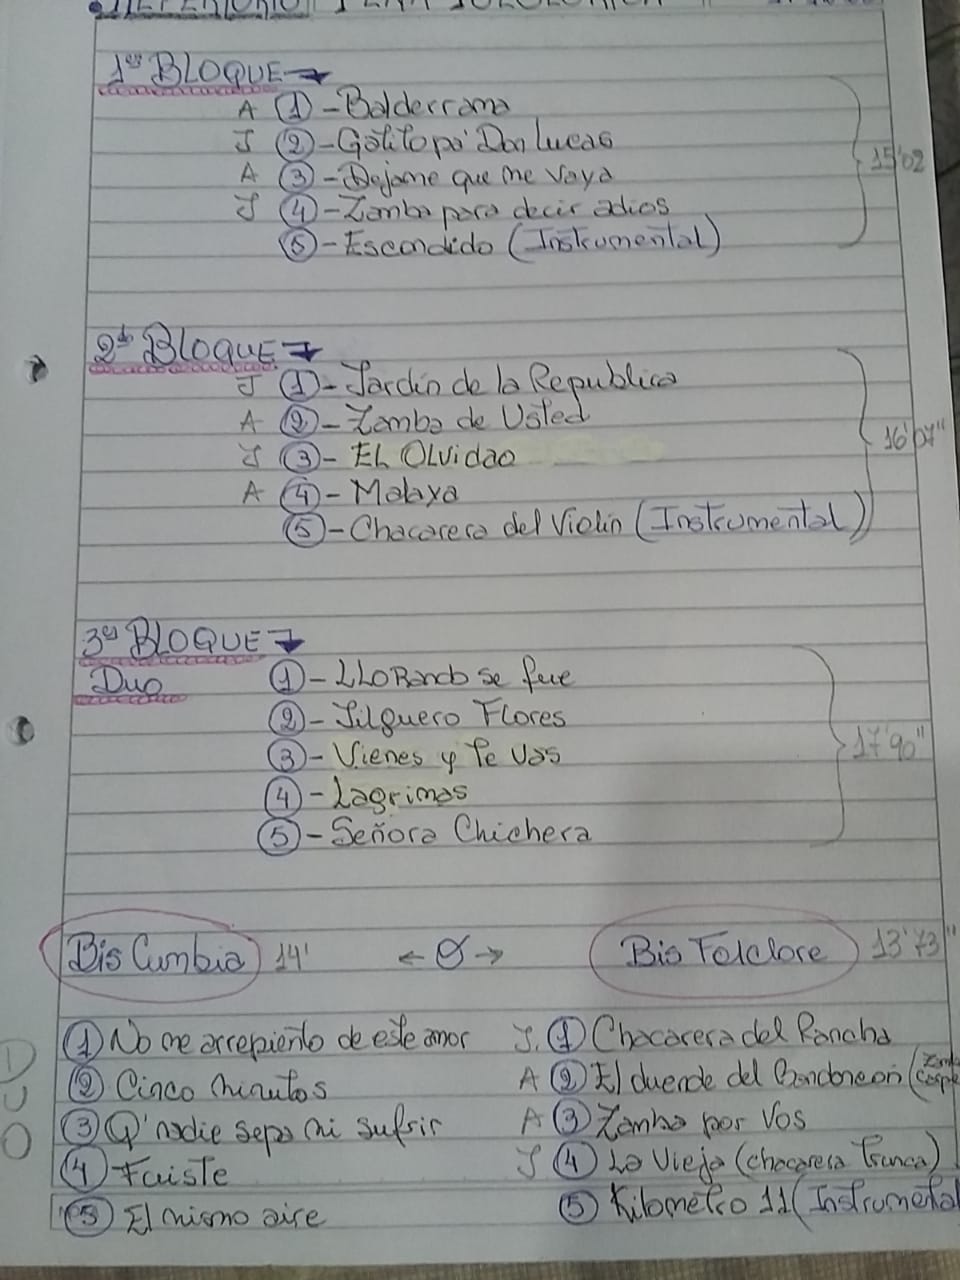 1er BLOQUE →
A ① - Balderrama
J ② - Gatito pa' Don Lucas
A ③ - Dejame que me vaya
J ④ - Zamba para decir adios
⑤ - Escondido (Instrumental)
15'02
2do BLOQUE →
J ① - Jardin de la Republica
A ② - Zamba de Usted
J ③ - EL Olvidao
A ④ - Malaya
⑤ - Chacarera del Violin (Instrumental)
16'07"
3er BLOQUE →
Duo
① - LLORando se fue
② - Jilguero Flores
③ - Vienes y Te Vas
④ - Lagrimas
⑤ - Señora Chichera
17'90"
Bis Cumbia 14' ← Ø → Bis Folclore 13'73"
DUO
① No me arrepiento de este amor
② Cinco minutos
③ Q' nadie sepa mi sufrir
④ Fuiste
⑤ El mismo aire
J. ① Chacarera del Rancho
A ② El duende del Bandoneon (
A ③ Zamba por Vos
J ④ La Vieja (chacarera Trunca)
⑤ Kilometro 11 (Instrumental